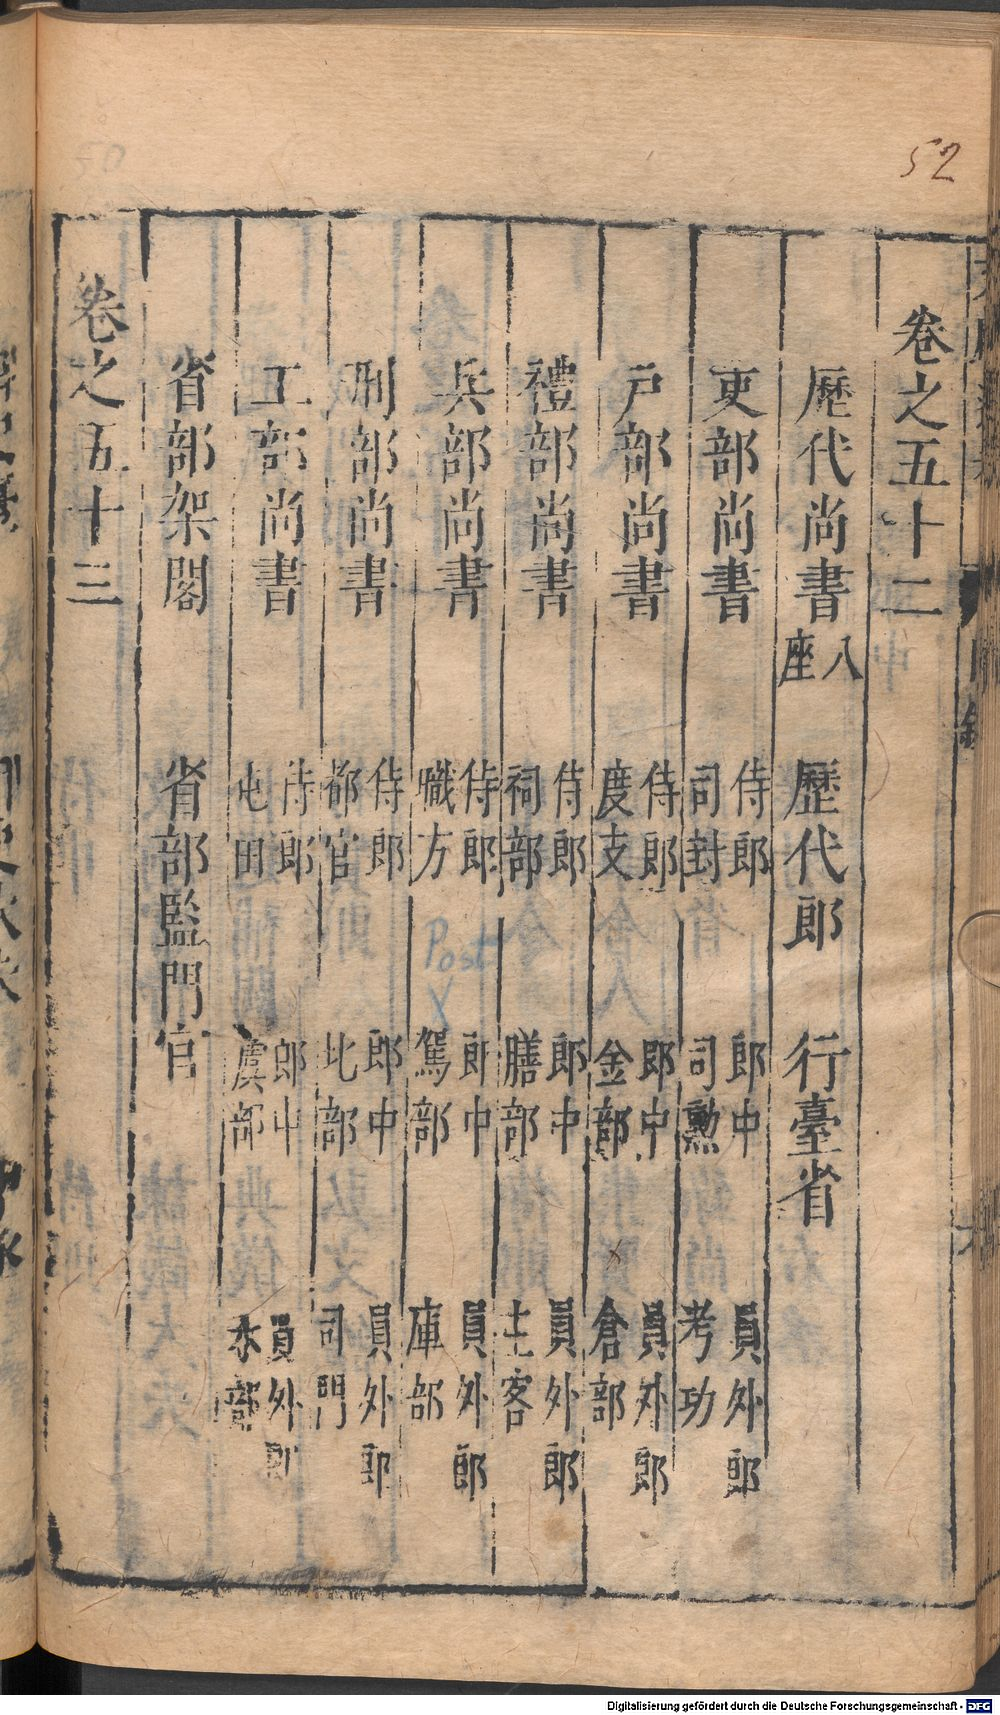 52
卷之五十二
歷代尚書 八座 歷代郎 行臺省
吏部尚書 侍郎 司封 郎中 司勲 員外郎 考功
戶部尚書 侍郎 度支 郎中 金部 員外郎 倉部
禮部尚書 侍郎 祠部 郎中 膳部 員外郎 主客
兵部尚書 侍郎 職方 郎中 駕部 員外郎 庫部
刑部尚書 侍郎 都官 郎中 比部 員外郎 司門
工部尚書 侍郎 屯田 郎中 虞部 員外郎 水部
省部架閣 省部監門官
卷之五十三
Post
Digitalisierung gefördert durch die Deutsche Forschungsgemeinschaft - DFG